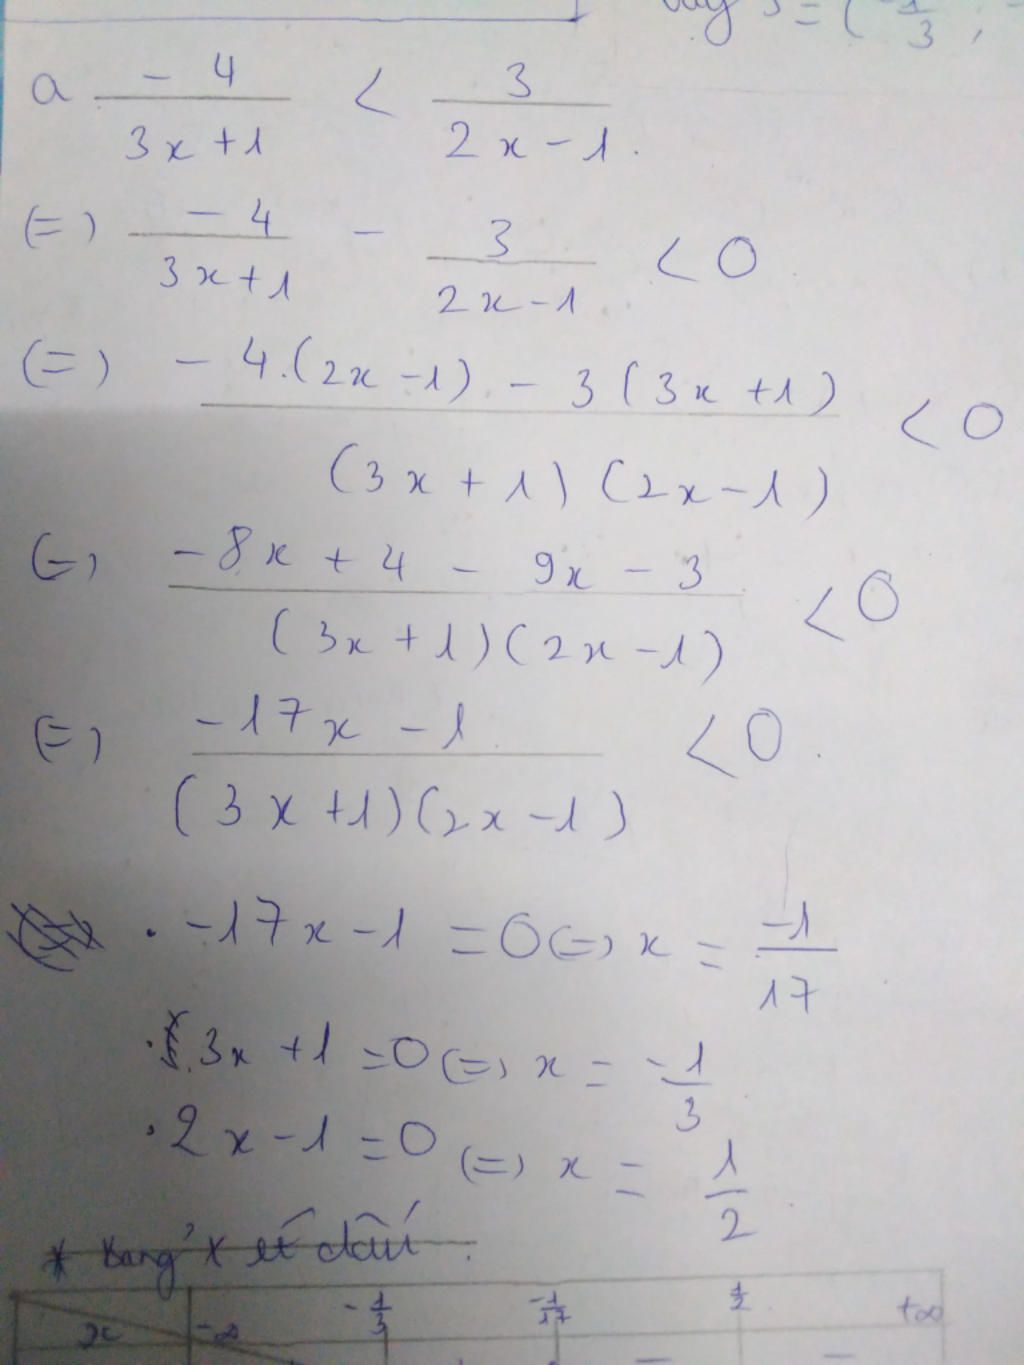 S = (-1/3 ;
a -4/(3x+1) < 3/(2x-1).
(=) -4/(3x+1) - 3/(2x-1) < 0
(=) (-4.(2x-1) - 3(3x+1))/((3x+1)(2x-1)) < 0
(=) (-8x + 4 - 9x - 3)/((3x+1)(2x-1)) < 0
(=) (-17x - 1)/((3x+1)(2x-1)) < 0.
• -17x - 1 = 0 (=) x = -1/17
• 3x + 1 = 0 (=) x = -1/3
• 2x - 1 = 0 (=) x = 1/2
* Bảng xét dấu
x -∞ -1/3 -1/17 1/2 +∞